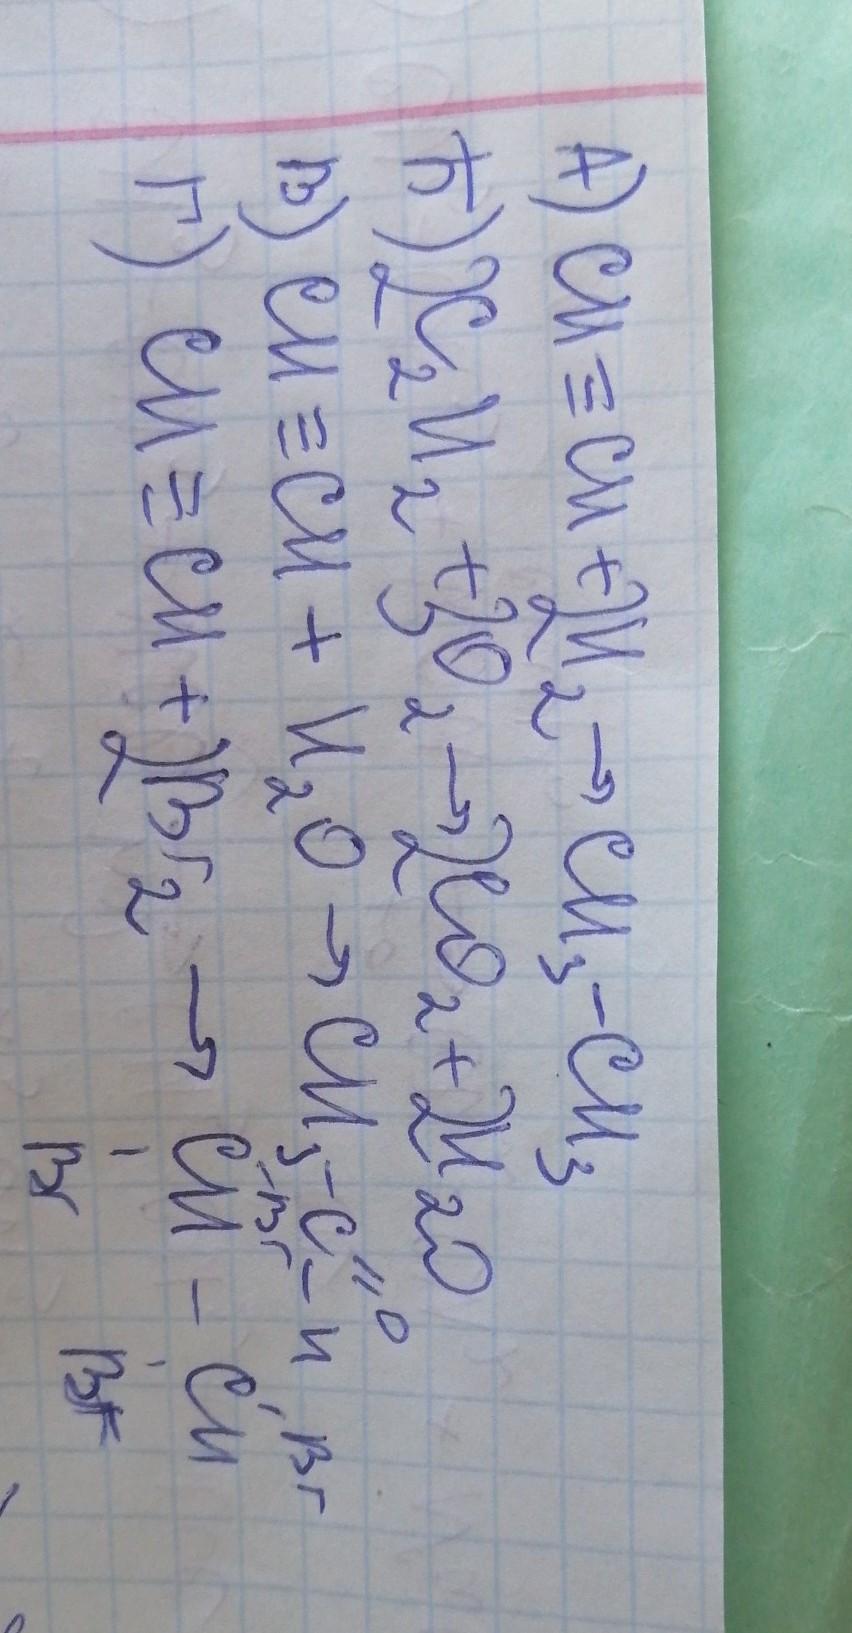 А) CH≡CH + 2H2 → CH3-CH3
Б) 2C2H2 + 3O2 → 2CO2 + 2H2O
В) CH≡CH + H2O → CH3-C-H
=O
Г) CH≡CH + 2Br2 → CH - CH
Br Br
Br Br